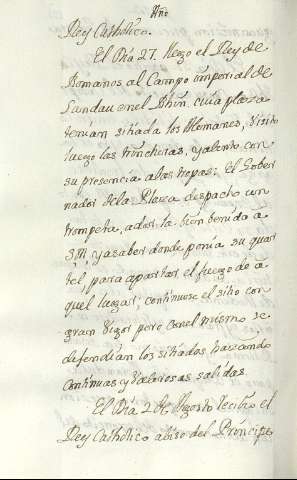 Año
Rey Catholico.
El Dia 27. llego el Rey de
Romanos al Campo imperial de
Landau en el Rhin, cuia plaza
tenian sitiada los Alemanes, visito
luego las trincheras, y alento con
su presencia a las tropas: El Gober
nador de la Plaza despacho un
trompeta, a dar la bien benida a
S.M. y a saber donde ponia su quar
tel, para apartar el fuego de a
quel lugar; continuose el sitio con
gran vigor pero con el mismo se
defendian los sitiados haciendo
continuas y valerosas salidas
El Dia 2 de Agosto recibio el
Rey Catholico abiso del Principe